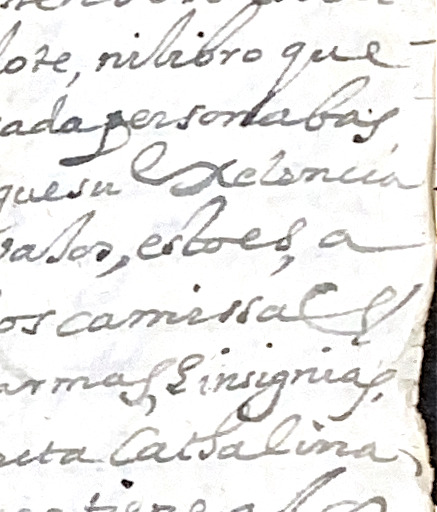 lote, ni libro que
cada persona bas
que su Exelencia
valor, esto es, a
os camissas
armas, E insignias,
nta Cathalina,